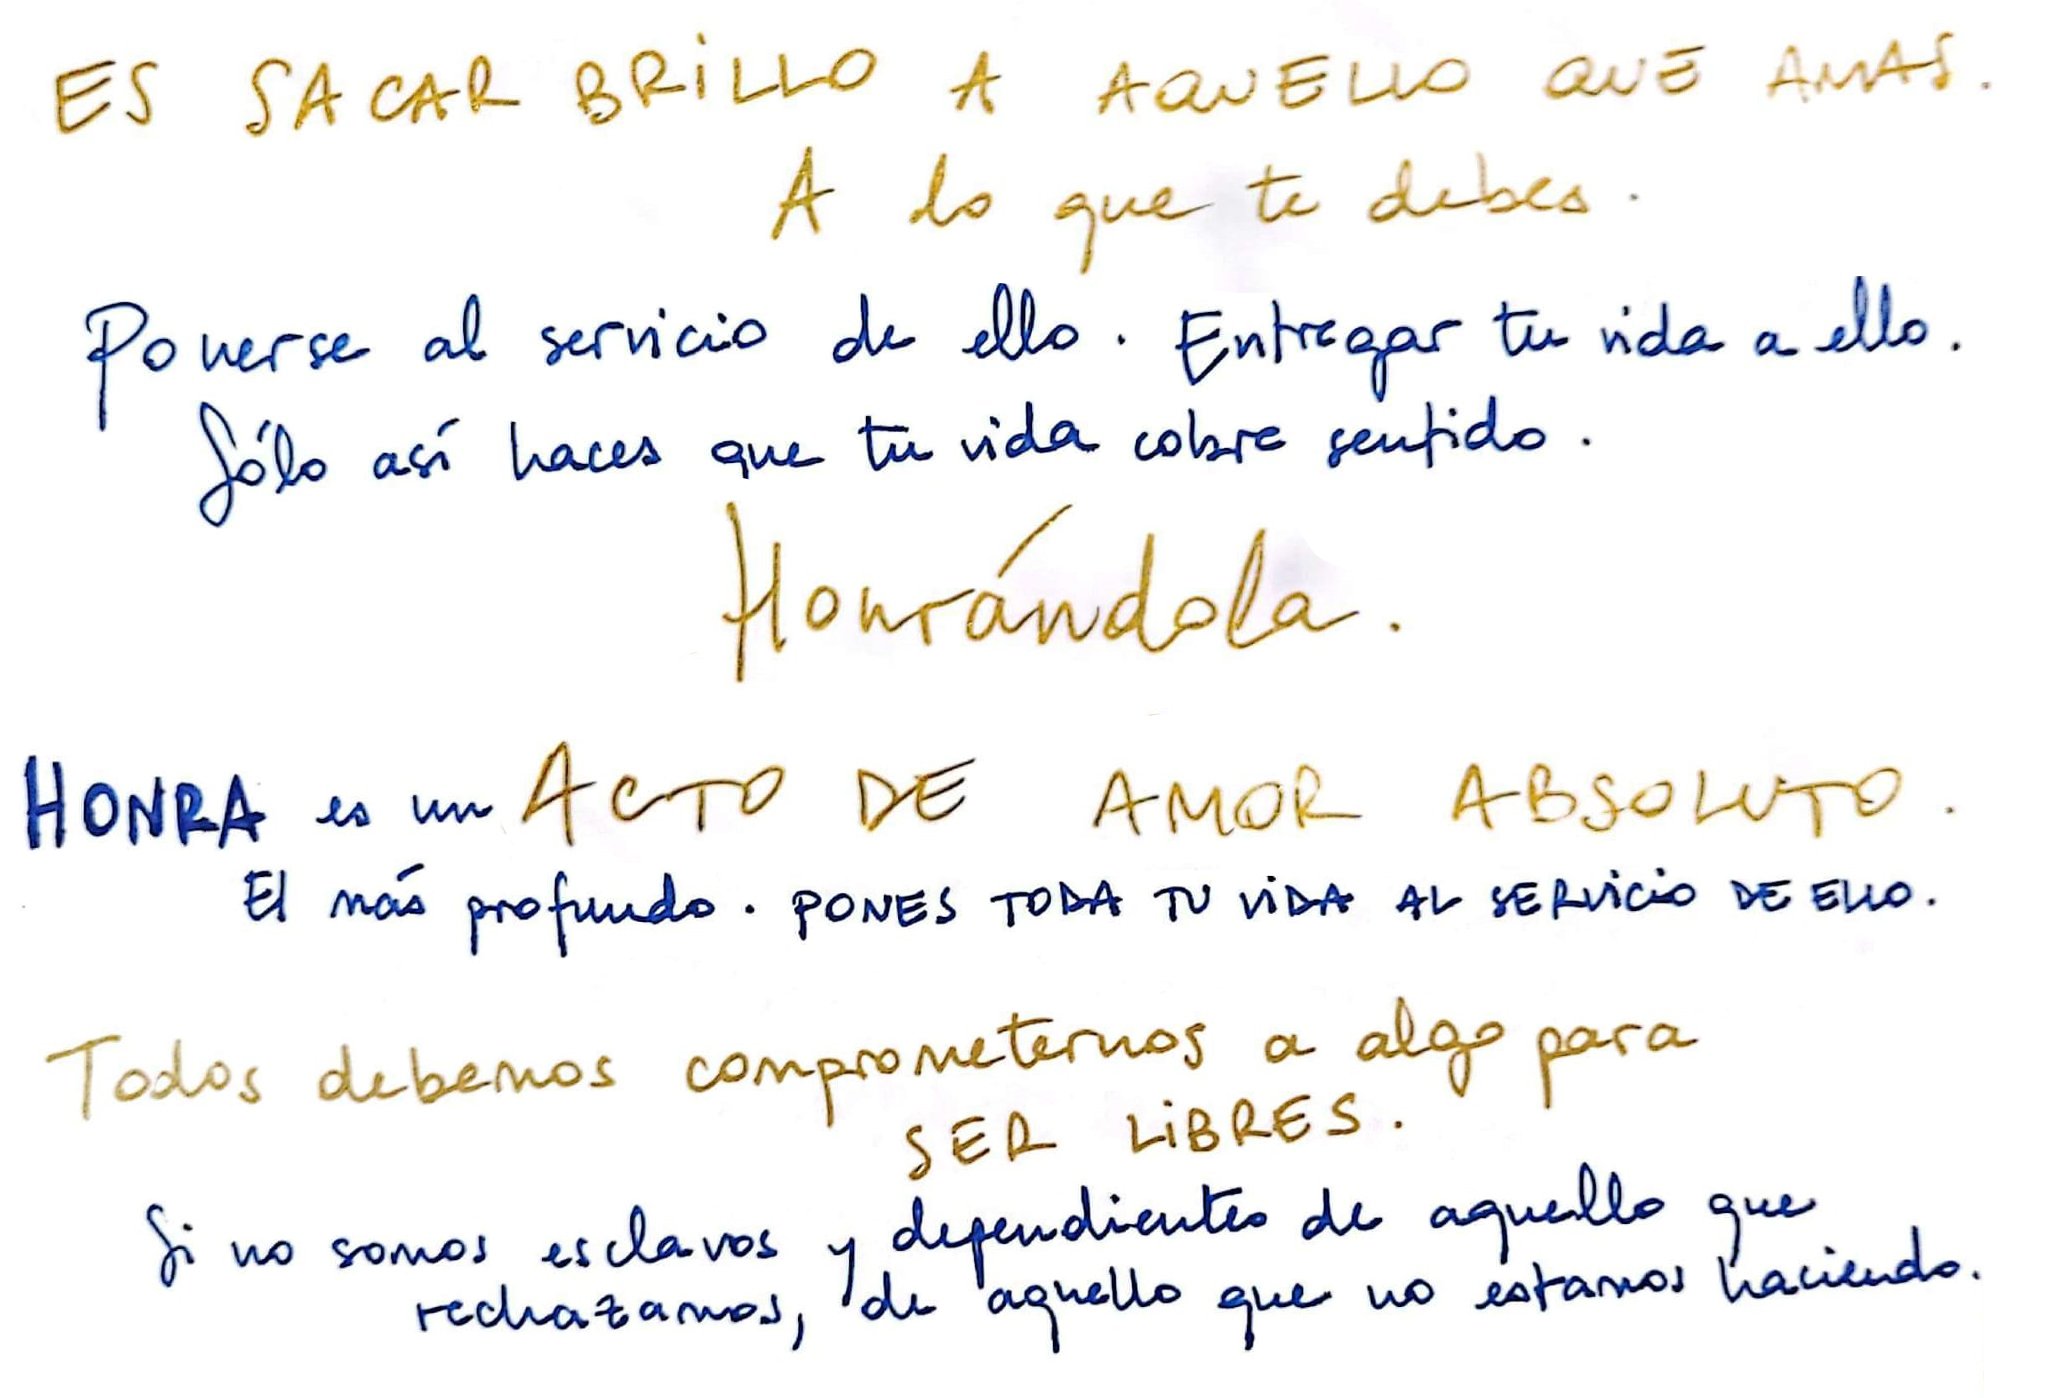 ES SACAR BRILLO A AQUELLO QUE AMAS.
A lo que te debes.
Ponerse al servicio de ello. Entregar tu vida a ello.
Sólo así haces que tu vida cobre sentido.
Honrándola.
HONRA es un ACTO DE AMOR ABSOLUTO.
El más profundo. PONES TODA TU VIDA AL SERVICIO DE ELLO.
Todos debemos comprometernos a algo para
SER LIBRES.
Si no somos esclavos y dependientes de aquello que
rechazamos, de aquello que no estamos haciendo.